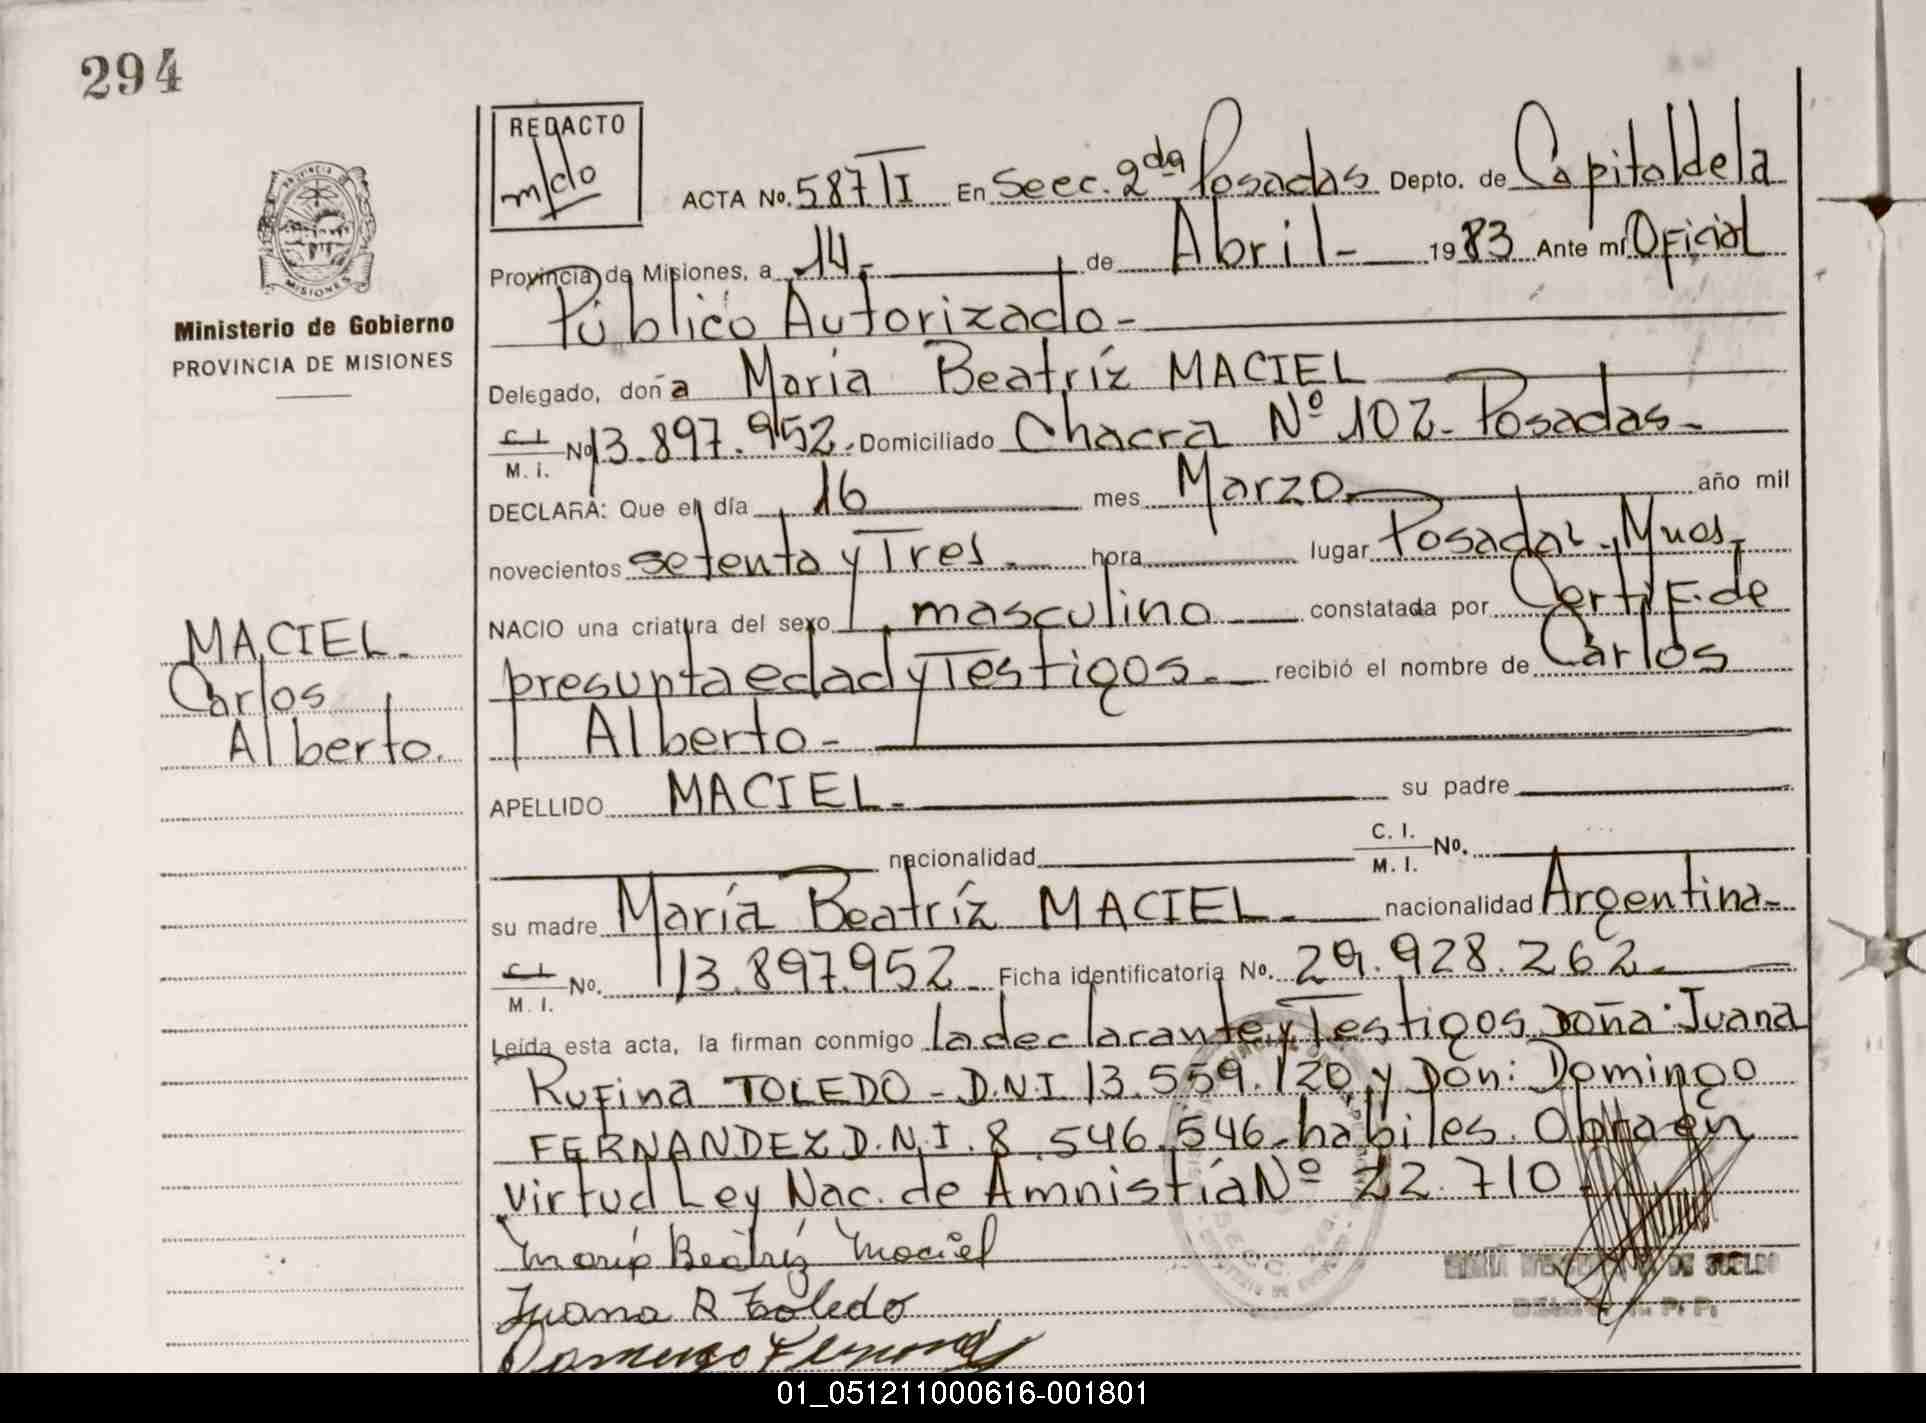 294
REDACTO
PROVINCIA
MISIONES
Ministerio de Gobierno
PROVINCIA DE MISIONES
ACTA No. 587 TI En Secc. 2da Posadas Depto. de Capital de la
Provincia de Misiones, a 14.- de Abril - 1983 Ante mí Oficial
Público Autorizado -
Delegado, doña María Beatríz MACIEL
C.I. M. i. No 13.897.952. Domiciliado Chacra Nº 102 - Posadas -
DECLARA: Que el día 16 mes Marzo año mil
novecientos setenta y Tres. hora lugar Posadas, Mnes,
NACIO una criatura del sexo masculino constatada por Certif. de
presunta edad y Testigos. recibió el nombre de Carlos
Alberto -
MACIEL.
Carlos
Alberto.
APELLIDO MACIEL. su padre
nacionalidad C. I. M. I. No.
su madre María Beatríz MACIEL. nacionalidad Argentina.
C.I. M. I. No. 13.897.952 Ficha identificatoria No. 29.928.262.
Leída esta acta, la firman conmigo la declarante y Testigos Doña: Juana
Rufina TOLEDO - D.N.I. 13.559.120, y Don: Domingo
FERNANDEZ D.N.I. 8.546.546 - habiles. Obra en
virtud Ley Nac. de Amnistía Nº 22.710.
María Beatriz Maciel
Juana R Toledo
Domingo
01_051211000616-001801